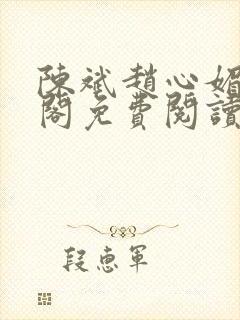 陳斌趙心媚
閣免費閱讀
段惠軍